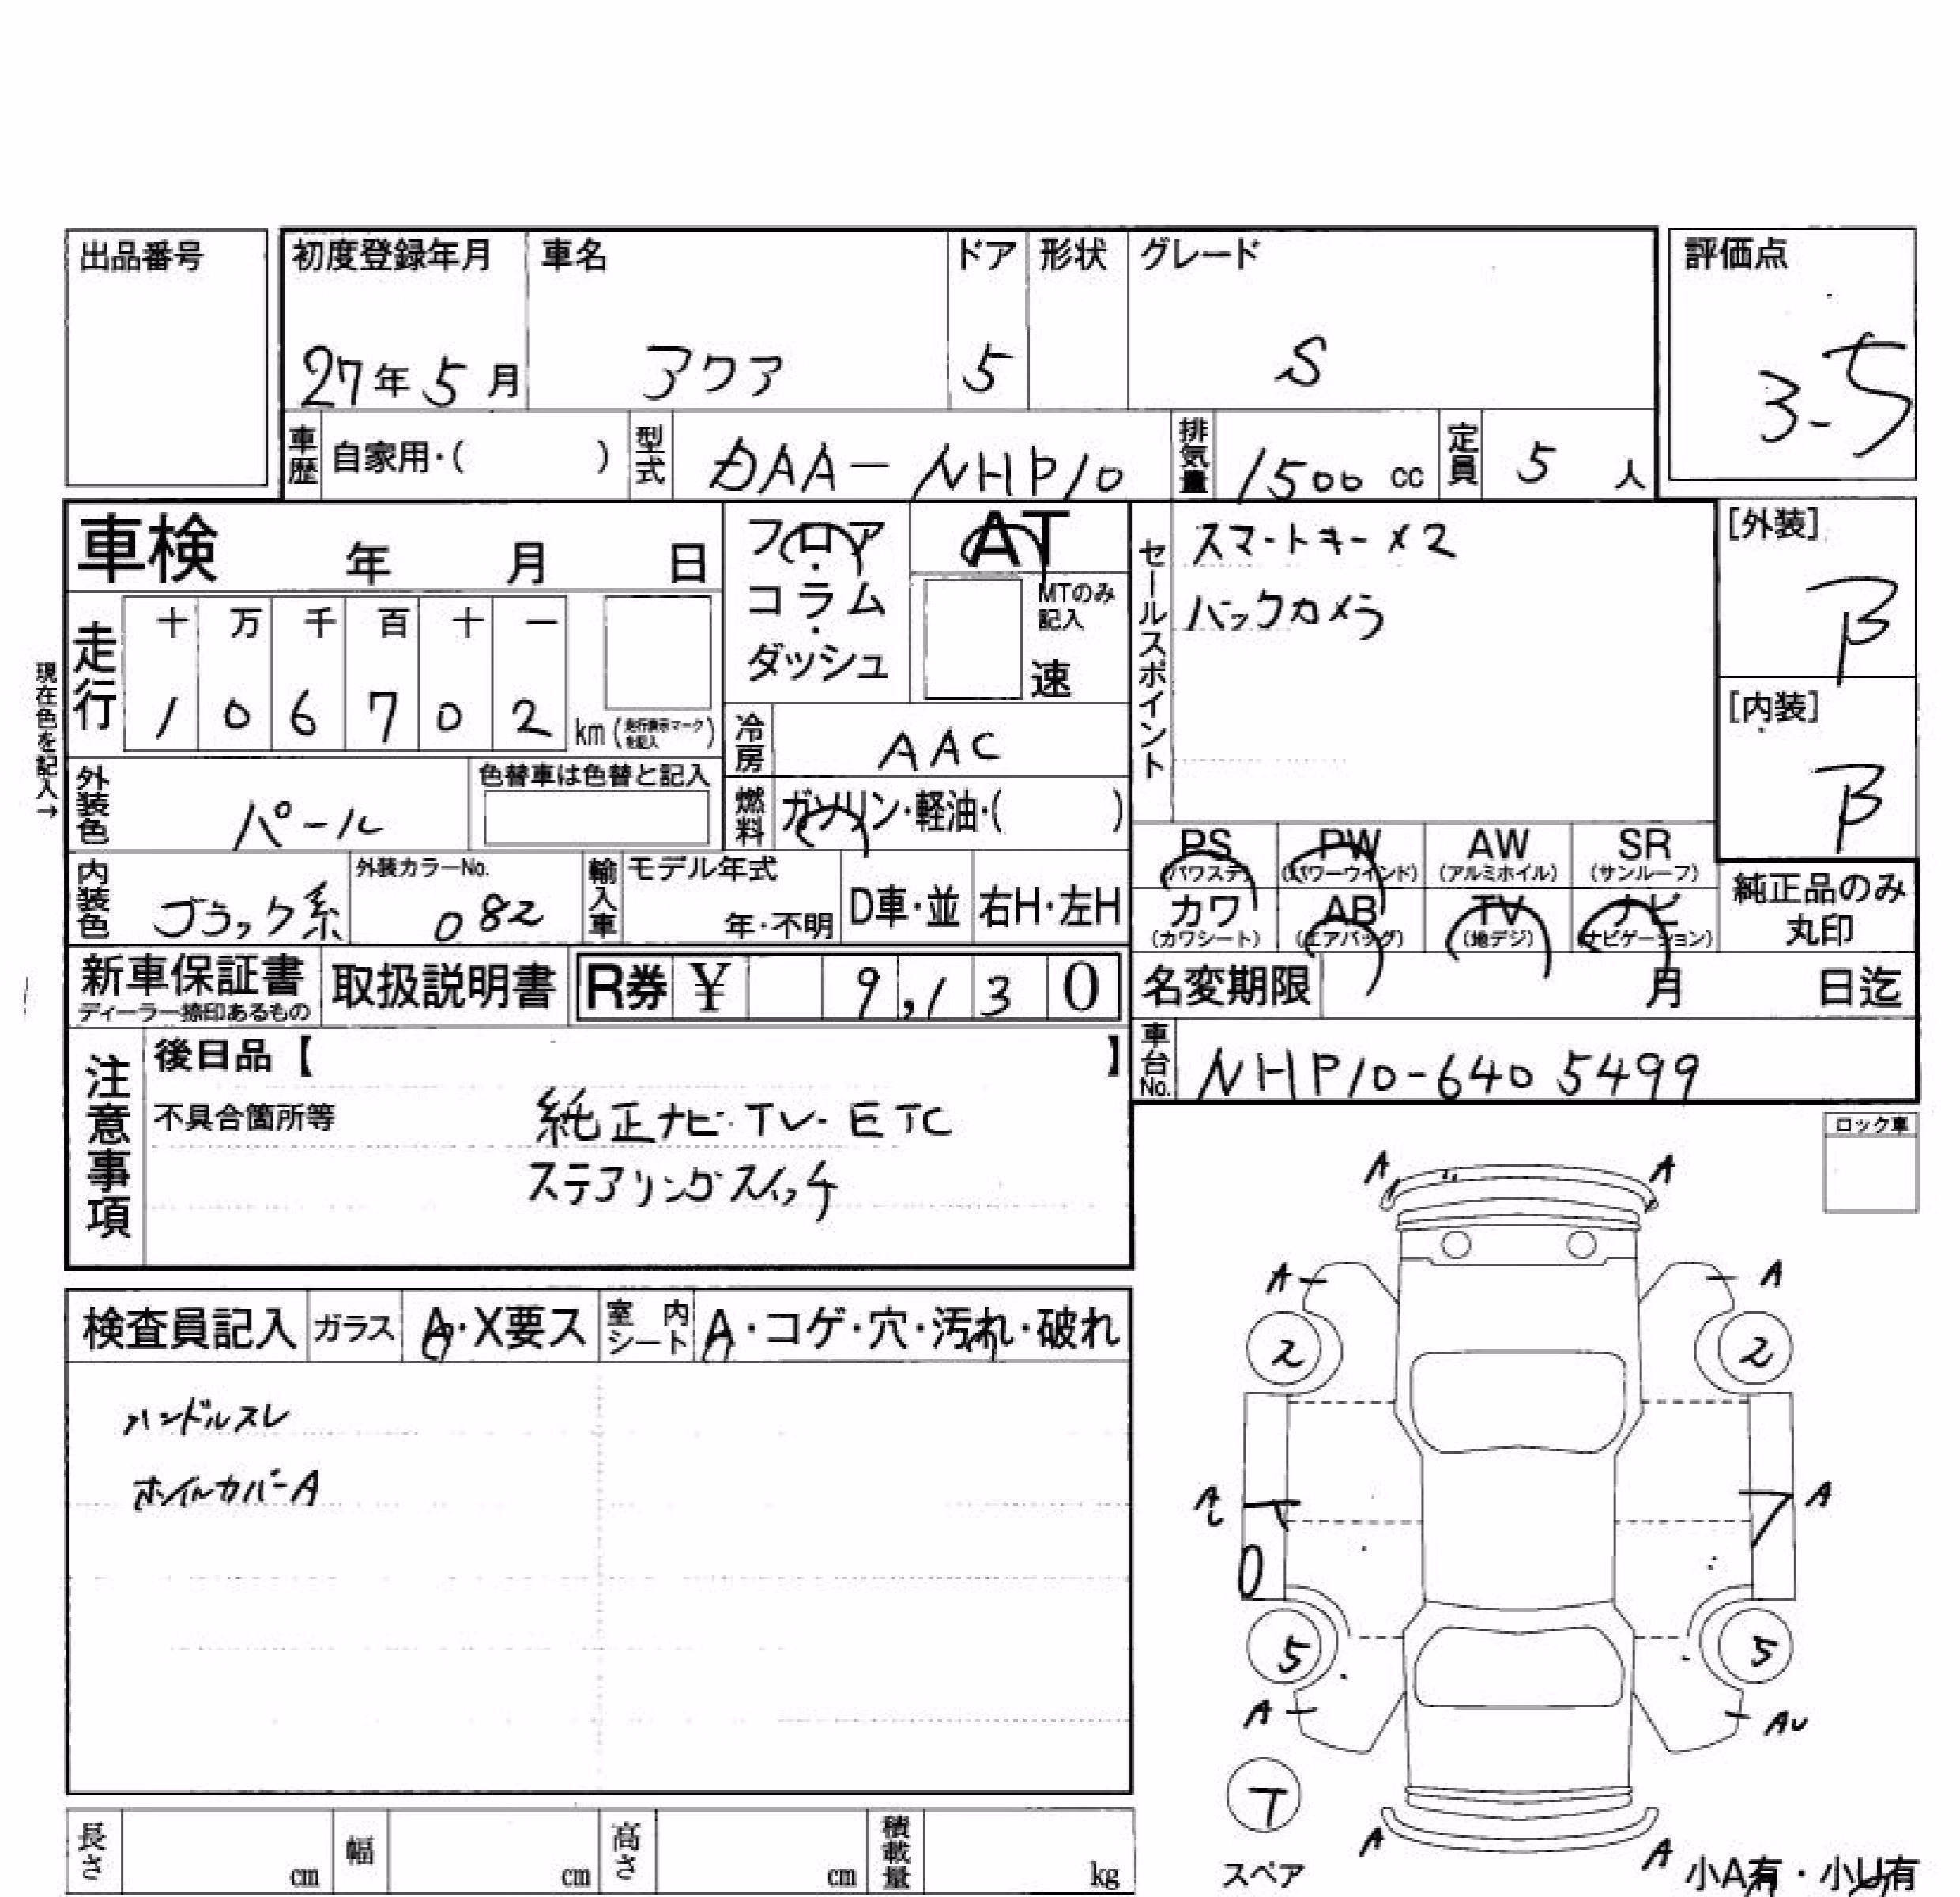 出品番号
初度登録年月 車名 ドア 形状 グレード 評価点
27年5月 アクア 5 S 3-5
車歴 自家用・( ) 型式 DAA-NHP10 排気量 1500 cc 定員 5 人
車検 年 月 日
フロア・コラム・ダッシュ
AT
MTのみ記入
速
セールスポイント
スマートキー×2
バックカメラ
[外装]
B
[内装]
B
現在色を記入→
走行 十 万 千 百 十 一
1 0 6 7 0 2 km (走行表示マークを記入)
冷房 AAC
燃料 ガソリン・軽油・( )
外装色 パール 色替車は色替と記入
内装色 ブラック系 外装カラーNo. 082 輸入車 モデル年式 年・不明 D車・並 右H・左H
PS (パワステ) PW (パワーウインド) AW (アルミホイル) SR (サンルーフ)
カワ (カワシート) AB (エアバッグ) TV (地デジ) ナビ (ナビゲーション)
純正品のみ丸印
新車保証書 ディーラー捺印あるもの 取扱説明書 R券 ¥ 9,130
名変期限 月 日迄
車台No. NHP10-6405499
注意事項
後日品【 】
不具合箇所等 純正ナビ・TV・ETC
ステアリングスイッチ
ロック車
検査員記入 ガラス A・X要ス 室内シート A・コゲ・穴・汚れ・破れ
ハンドルスレ
ホイルカバーA
A A
A A
2 2
A A
5 5
A AU
T
スペア
A A
小A有・小U有
長さ cm 幅 cm 高さ cm 積載量 kg